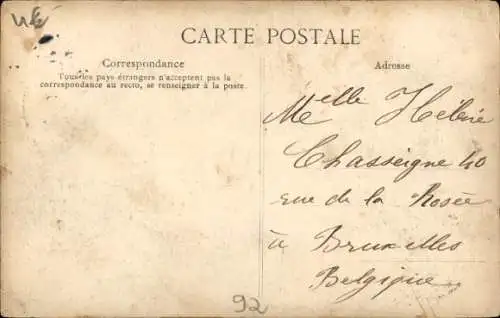 CARTE POSTALE
Correspondance
Tous les pays étrangers n'acceptent pas la
correspondance au recto, se renseigner à la poste.
Adresse
Melle Hélène
Chasseigne 40
rue de la Rosée
à Bruxelles
Belgique
92